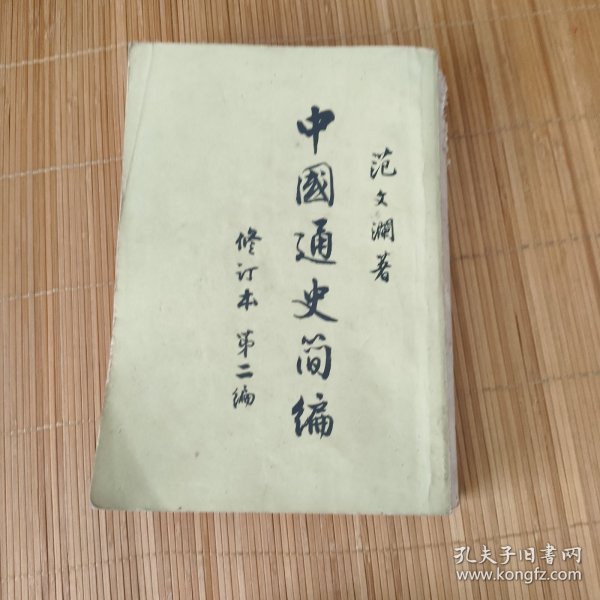 范文澜著
中國通史简编
修订本 第二编
孔夫子旧书网
www.kongfz.com